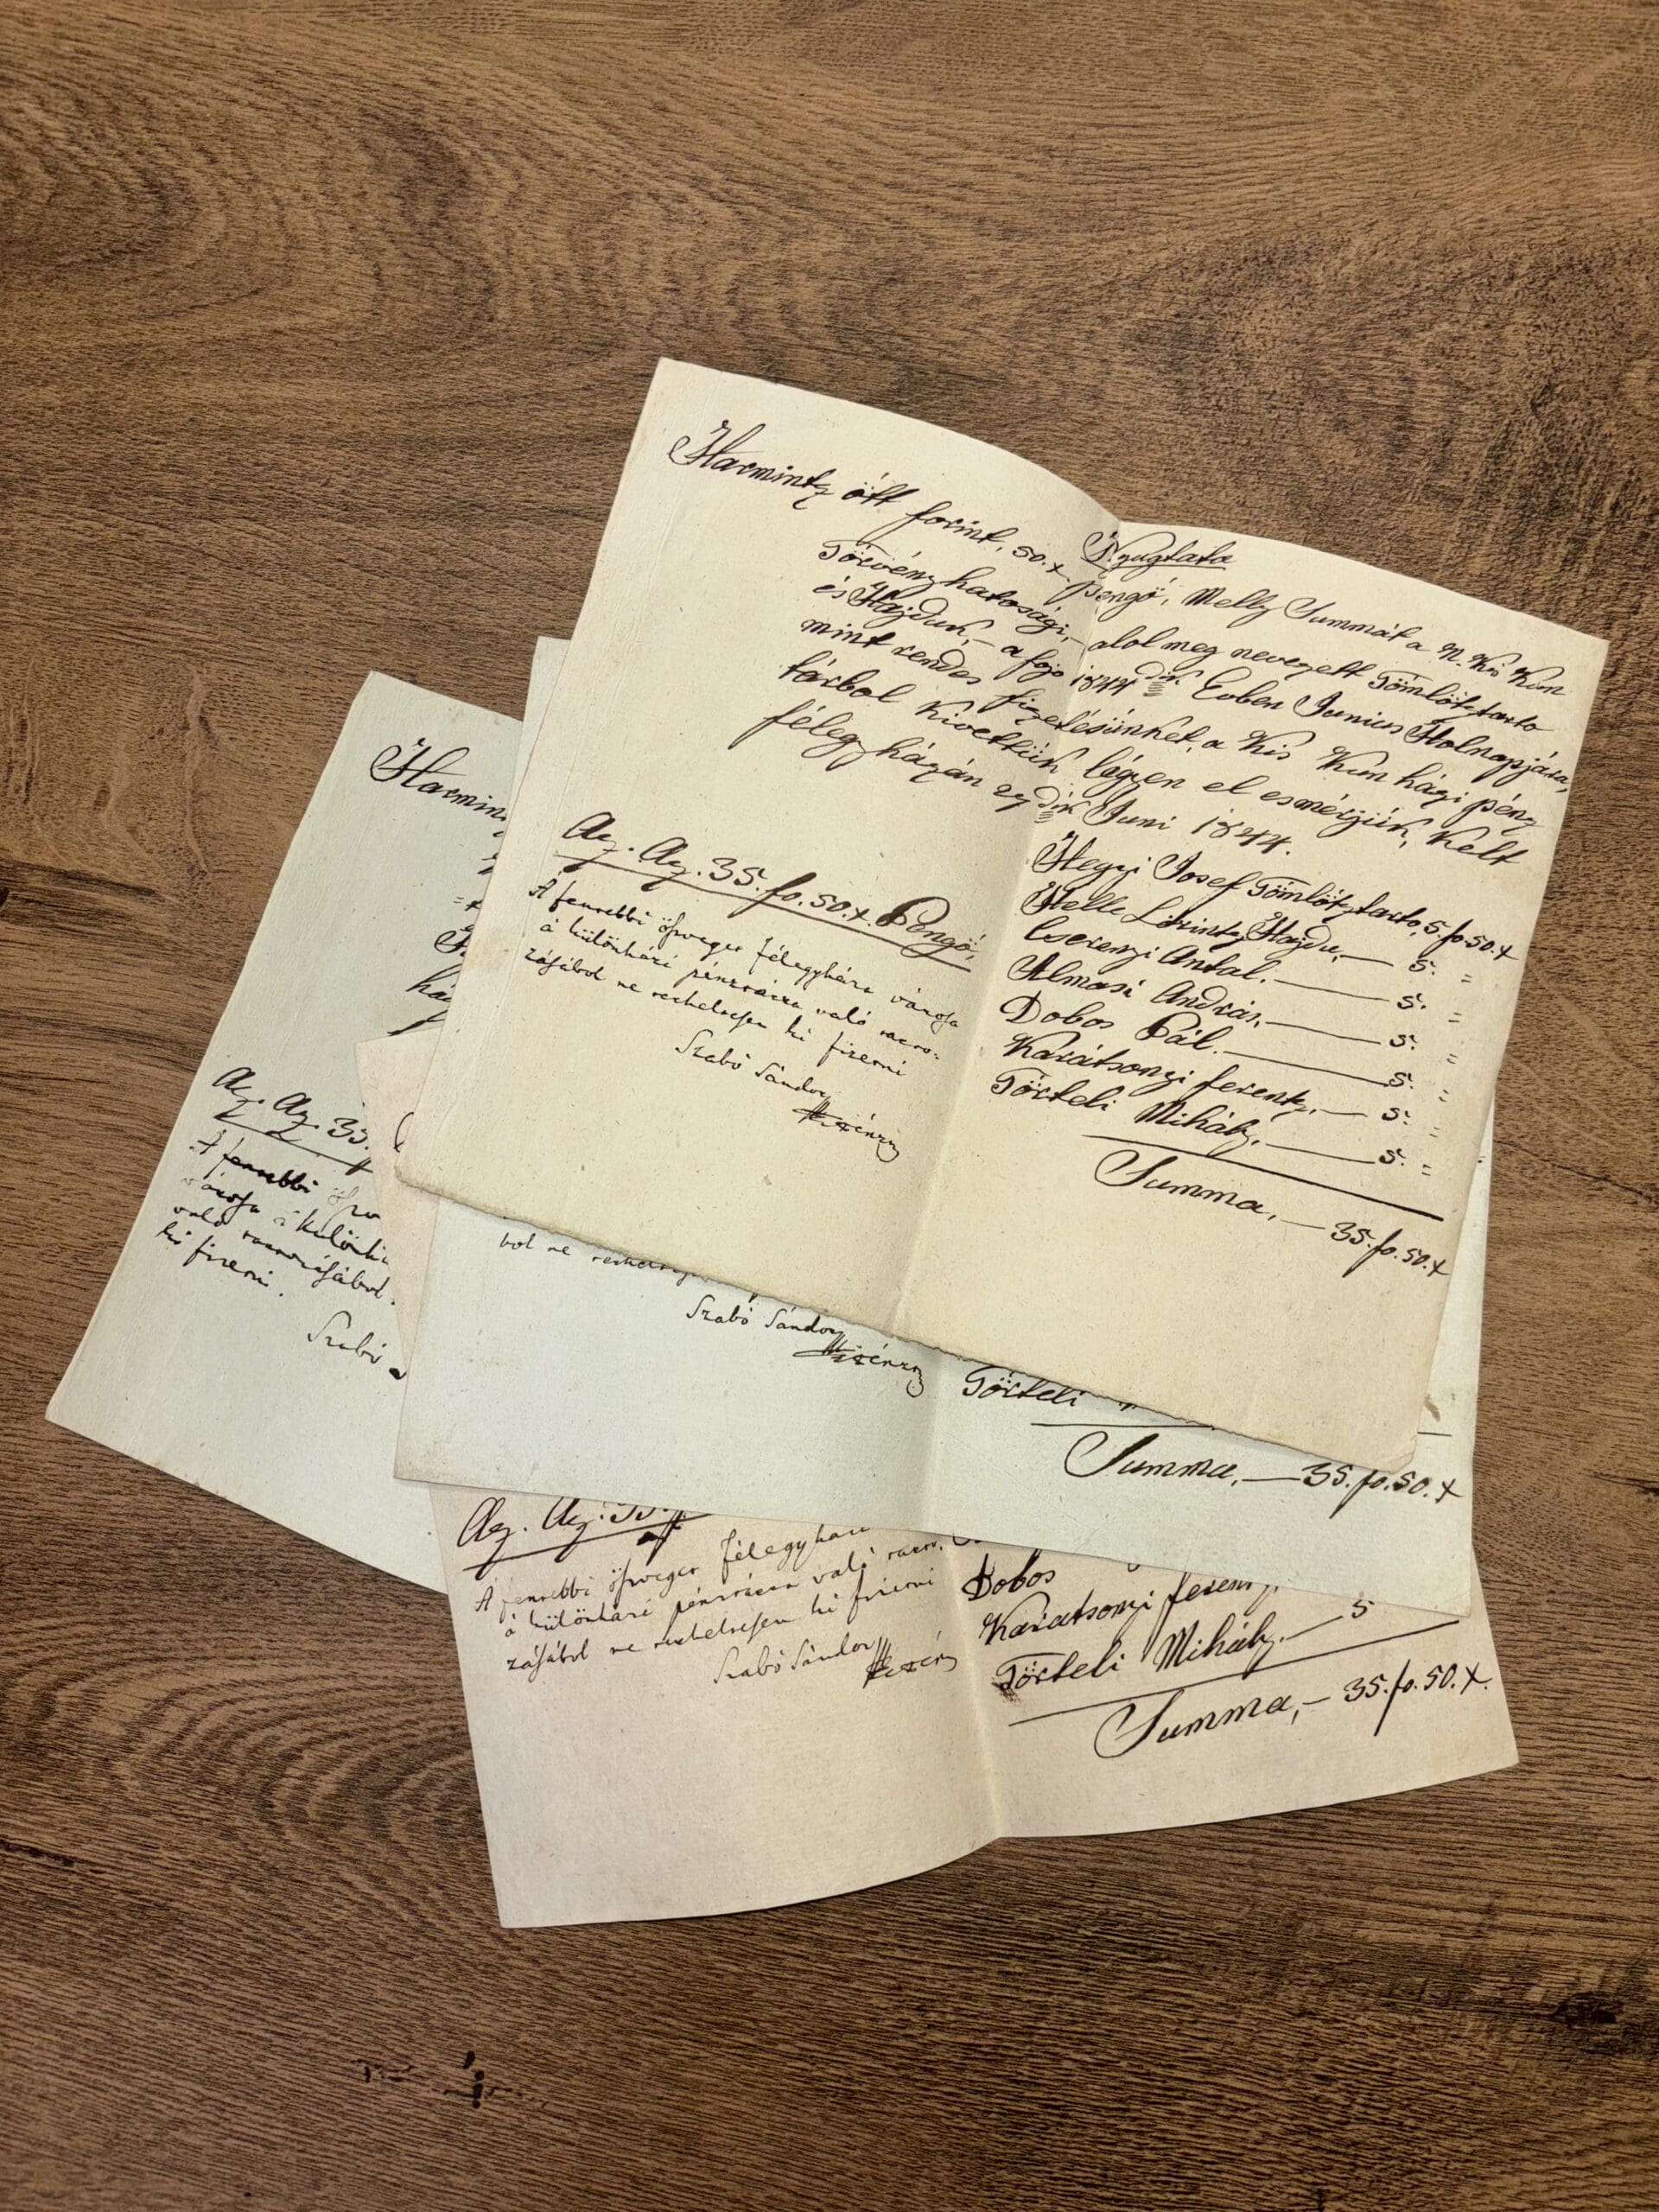 Nyugtata
Harmintz ött forint, 50.x pengö, Melly Summát a N. Kis Kun
Törvényhatósági, alol meg nevezett Tömlötztarto
és Hajduk, a fojo 1844dik Évben Junius Holnapjára,
mint rendes fizetésünket, a Kis Kun házi pénz
tárbol Kivettük légyen el esmérjük, Költ
félegyházán 29dik Juni 1844.
Hegyi Josef Tömlötztarto, 5. fo 50. x
Helle Lörintz Hajdu, 5. =
Cserenyi Antal. 5. =
Almasi András, 5. =
Dobos Pál. 5. =
Karátsonyi ferentz, 5. =
Törteli Mihály, 5. =
Summa, 35. fo. 50. x
Az. Az. 35. fo. 50. x. Pengö,
A fennebbi öszveget Félegyháza városa
á különházi pénztárra való
zásábol ne terheltessen ki fizetni
Szabó Sándor
Harmin
há
Az. Az. 35.
A fennebbi
városa á különhá
való
ki fizetni.
Szabó
bol ne
Szabó Sándor
Törteli
Summa, 35. fo. 50. x
Az. Az. 35. f
A fennebbi öszveget Félegyház
á különházi pénztárra való
zásábol ne terheltessen ki fizetni
Szabó Sándor
Dobos
Karatsonyi ferent
Törteli Mihály. 5
Summa, 35. fo. 50. x.